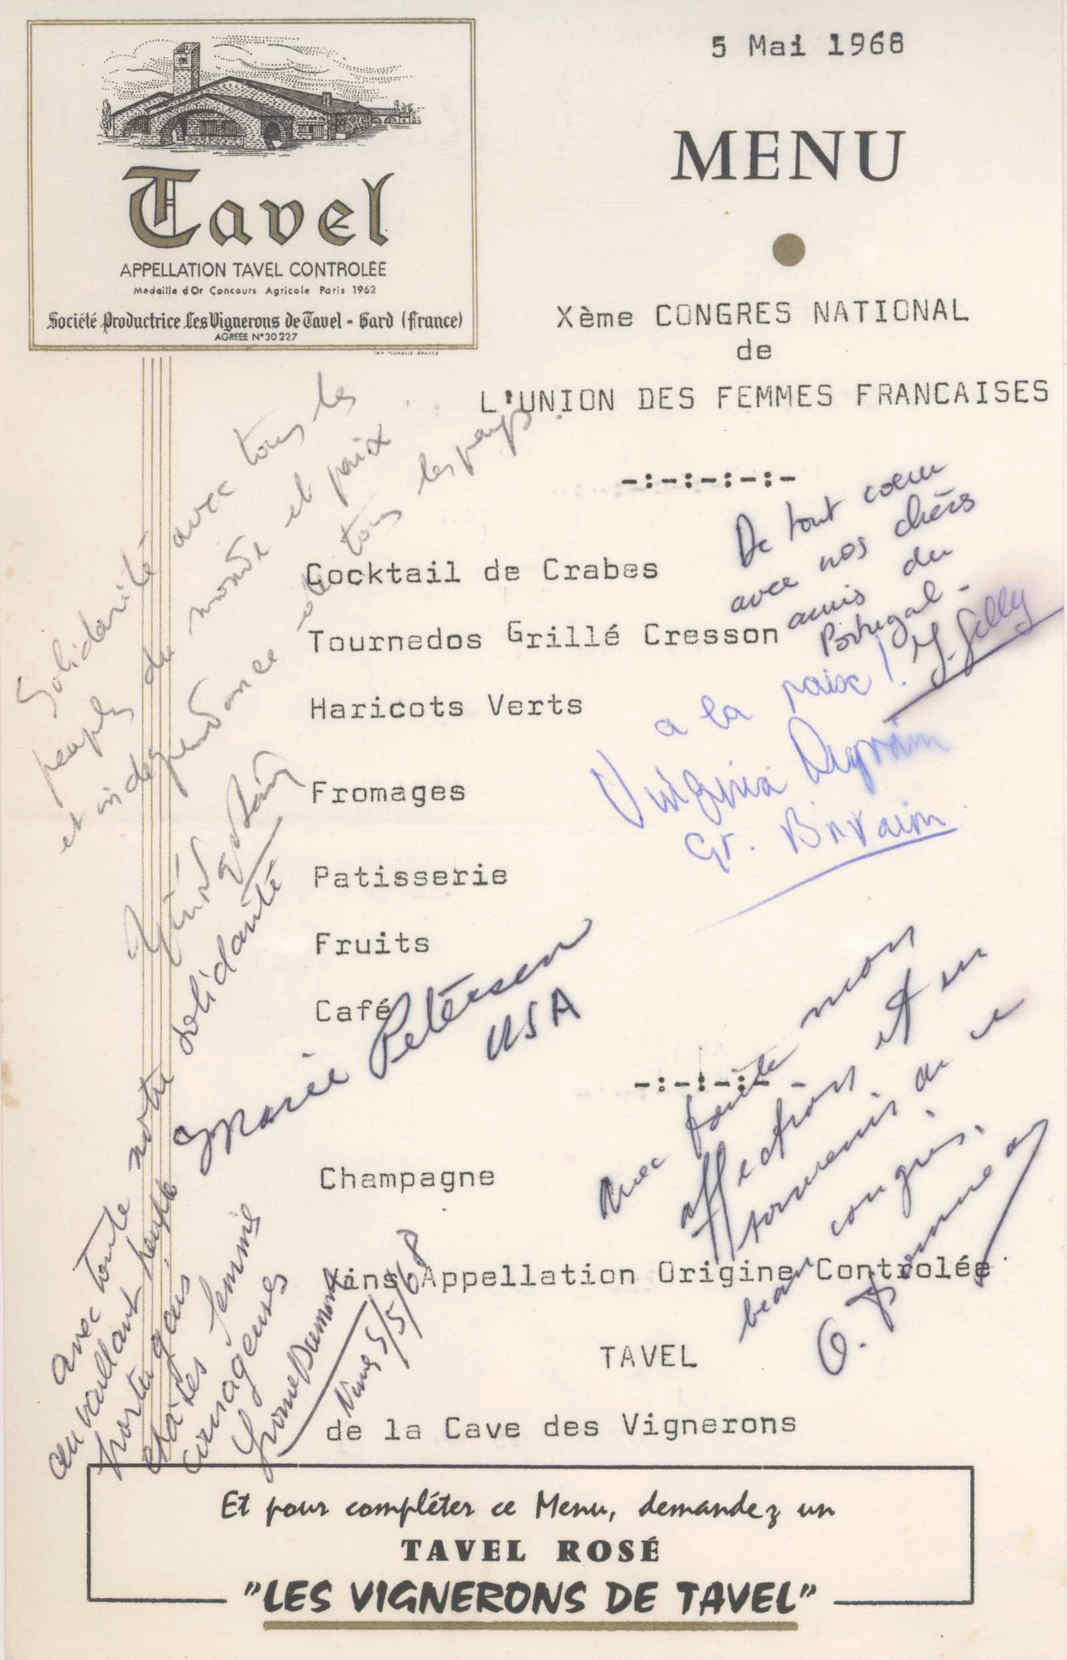 5 Mai 1968
MENU
Tavel
APPELLATION TAVEL CONTROLÉE
Medaille d'Or Concours Agricole Paris 1962
Société Productrice Les Vignerons de Tavel - Gard (France)
AGREEE N°30227
Xème CONGRES NATIONAL
de
L'UNION DES FEMMES FRANCAISES
-:-:-:-:-
Cocktail de Crabes
Tournedos Grillé Cresson
Haricots Verts
Fromages
Patisserie
Fruits
Café
-:-:-:-
Champagne
Vins Appellation Origine Controlée
TAVEL
de la Cave des Vignerons
Solidarité avec tous les
peuples du monde et paix
et indépendance de tous les pays.
De tout coeur
avec nos chers
amis du
Portugal -
Y. Gilly
a la paix!
Virginia
Gt. Britain
Marie Petersen
USA
avec toute notre solidarité
au vaillant peuple
portugais
et à ses femmes
courageuses
Yvonne Dumont
Nimes 5/5/68
Avec toute mon
affection et en
souvenir de ce
beau congrès.
Et pour compléter ce Menu, demandez un
TAVEL ROSÉ
"LES VIGNERONS DE TAVEL"